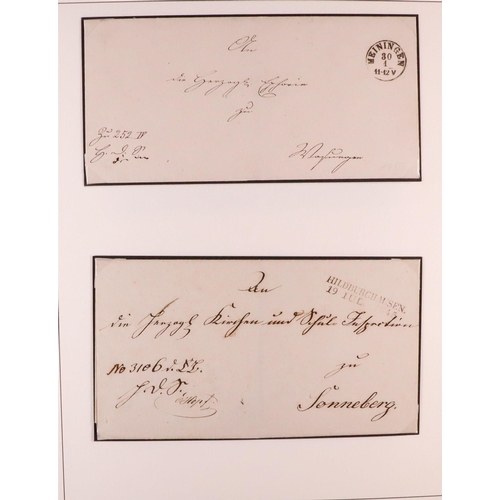 An
MEININGEN
30
1
11-12 V
die Herzogl. Ephorie
zu
Zu 252. IV
H. d. S.
Wasungen
An
HILDBURGHAUSEN.
19 IUL. 45
die Herzogl. Kirchen und Schul-Inspection
zu
No 3106
H. d. S.
Sonneberg.